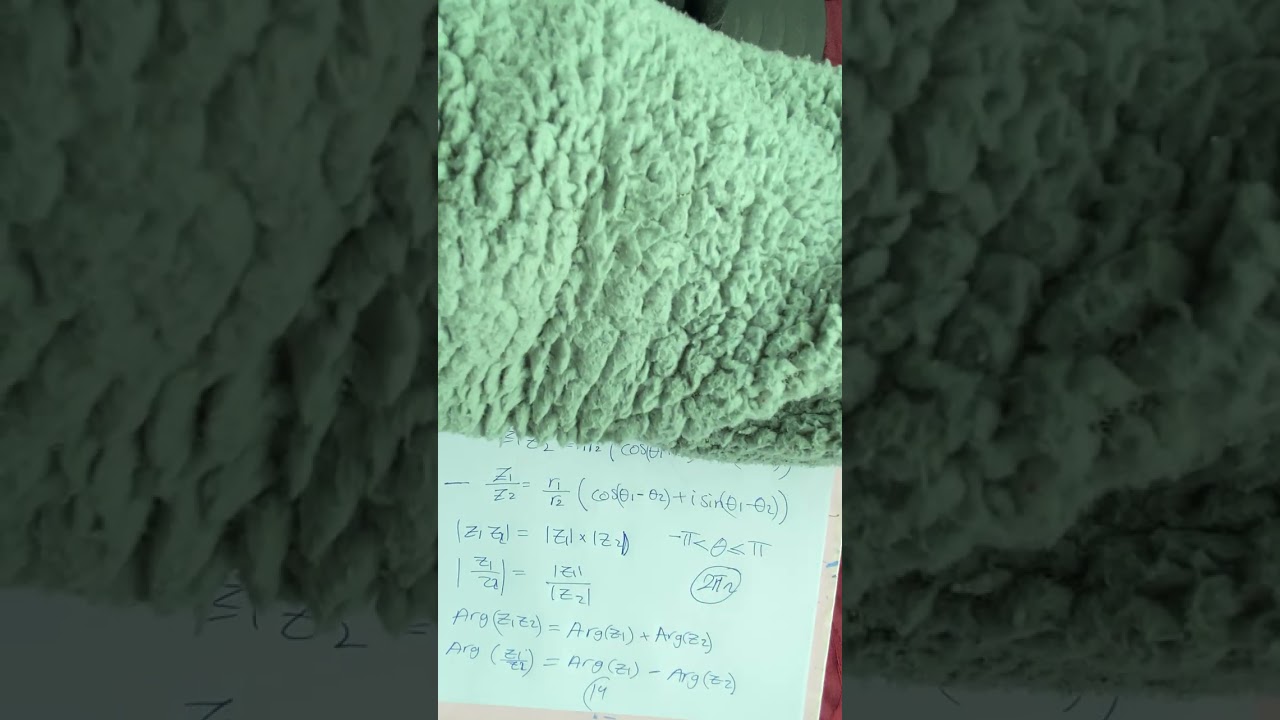 z₁z₂ = r₁r₂ (cos(θ₁
— z₁/z₂ = r₁/r₂ (cos(θ₁-θ₂)+i sin(θ₁-θ₂))
|z₁ z₂| = |z₁|×|z₂| -π<θ≤π
|z₁/z₂| = |z₁|/|z₂| 2πn
Arg(z₁z₂) = Arg(z₁) + Arg(z₂)
Arg (z₁/z₂) = Arg(z₁) - Arg(z₂)
(14